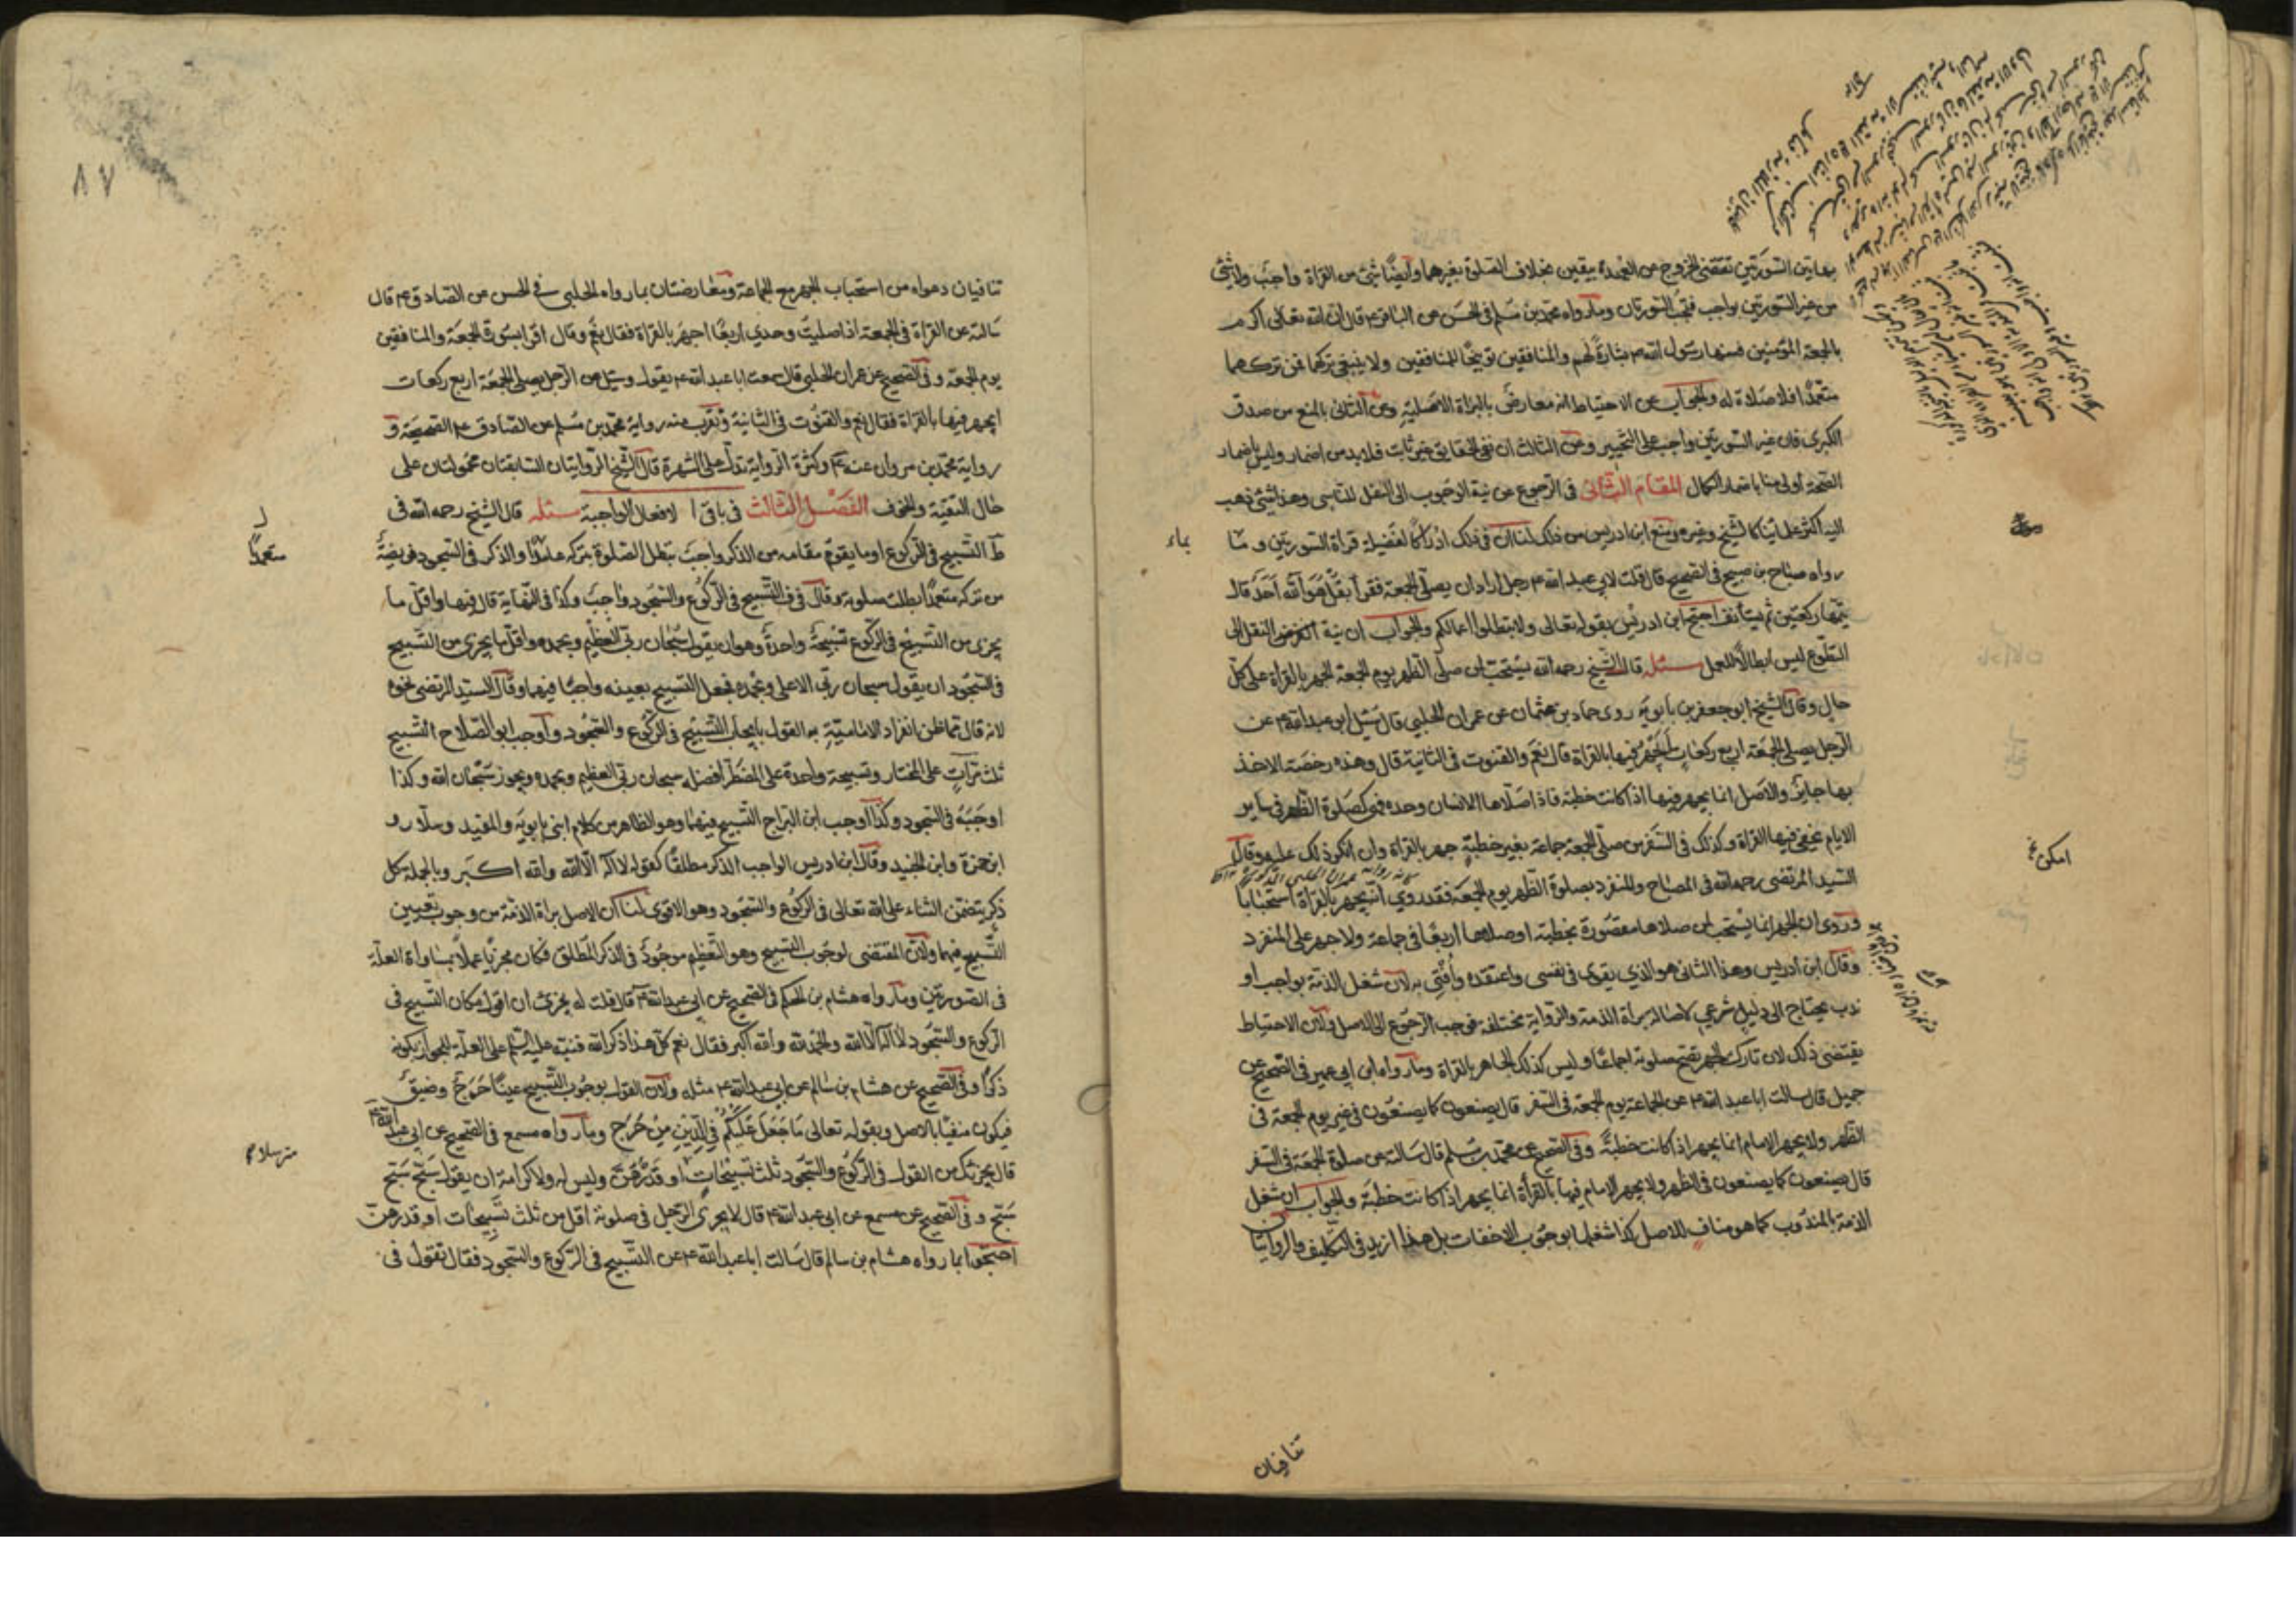 بهاتين السورتين تقتضي الخروج من العهدة بيقين بخلاف الصلوة بغيرهما وأيضا شئ من القراة واجب ولا شئ
من غير السورتين بواجب فتجب السورتان ومارواه محمد بن مسلم في الحسن عن الباقر ع قال ان الله تعالى اكرم
بالجمعة المؤمنين فسنها رسول الله ص بشارة لهم والمنافقين توبيخا للمنافقين ولا ينبغي تركهما فمن تركهما
متعمدا فلا صلاة له والجواب عن الاحتياط انه معارض بالبراة الاصلية وعن الثاني بالمنع من صدق
الكبرى فان غير السورتين واجب على التخيير وعن الثالث ان نفي الحقايق غير ثابت فلا بد من اضمار وليس باضمار
الصحة اولى منا باضمار الكمال المقام الثاني في الرجوع عن نية الوجوب الى النفل للناسي وهذا شئ ذهب
اليه اكثر علمائنا كالشيخ وغيره ومنع ابن ادريس من ذلك لنا ان في ذلك ادراكا لفضيلة قراة السورتين وما
رواه صباح بن صبيح في الصحيح قال قلت لابي عبد الله ع رجل اراد ان يصلي الجمعة فقرأ بقل هو الله احد قال
يتمها ركعتين ثم يستأنف احتج ابن ادريس بقوله تعالى ولا تبطلوا اعمالكم والجواب ان نية الفرض النقل الى
التطوع ليس ابطالا للعمل مسئلة قال الشيخ رحمه الله يستحب لمن صلى الظهر يوم الجمعة الجهر بالقراة على كل
حال وقال الشيخ ابو جعفر بن بابويه روى حماد بن عثمان عن عمران الحلبي قال سئل ابو عبد الله ع عن
الرجل يصلي الجمعة اربع ركعات أيجهر فيها بالقراة قال نعم والقنوت في الثانية قال وهذه رخصة الاخذ
بها جايز والاصل انما يجهر فيها اذا كانت خطبة فاذا صلاها الانسان وحده فهي كصلوة الظهر في ساير
الايام يخفي فيها القراة وكذلك في السفر من صلى الجمعة جماعة بغير خطبة جهر بالقراة وان انكر ذلك عليه وقال
السيد المرتضى رحمه الله في المصباح والمنفرد بصلوة الظهر يوم الجمعة فقد روي انه يجهر بالقراة استحبابا
وروى ان الجهر انما يستحب لمن صلاها مقصورة بخطبة او صلاها اربعا في جماعة ولا جهر على المنفرد
وقال ابن ادريس وهذا الثاني هو الذي يقوى في نفسي واعتقده وأفتي به لان شغل الذمة بواجب او
ندب يحتاج الى دليل شرعي لاصالة براة الذمة والرواية مختلفة فوجب الرجوع الى الاصل ولان الاحتياط
يقتضي ذلك لان تارك الجهر تصح صلوته اجماعا وليس كذلك الجاهر بالقراة ومارواه ابن ابي عمير في الصحيح عن
جميل قال سالت ابا عبد الله ع عن الجماعة يوم الجمعة في السفر قال يصنعون كما يصنعون في غير يوم الجمعة في
الظهر ولا يجهر الامام انما يجهر اذا كانت خطبة وفي الصحيح عن محمد بن مسلم قال سالته عن صلوة الجمعة في السفر
قال يصنعون كما يصنعون في الظهر ولا يجهر الامام فيها بالقرأة انما يجهر اذا كانت خطبة والجواب ان شغل
الذمة بالمندوب كما هو مناف للاصل كذا شغلها بوجوب الاخفات بل هذا ازيد في التكليف والروايتان
بماء
امكن
تنافيان
٨٧
تنافيان دعواه من استحباب الجهر مع الجماعة ومعارضتان بما رواه الحلبي في الحسن عن الصادق ع قال
سالته عن القراة في الجمعة اذا صليت وحدي اربعا اجهر بالقراة فقال نعم وقال اقرا بسورة الجمعة والمنافقين
يوم الجمعة وفي الصحيح عن عمران الحلبي قال سمعت ابا عبد الله ع يقول وسئل عن الرجل يصلي الجمعة اربع ركعات
ايجهر فيها بالقراة فقال نعم والقنوت في الثانية وتقرب منه رواية محمد بن مسلم عن الصادق ع الصحيحة و
رواية محمد بن مروان عنه ع وكثرة الرواية تدل على الشهرة قال الشيخ الروايتان السابقتان محمولتان على
حال التقية والخوف الفصل الثالث في باقي الافعال الواجبة مسئلة قال الشيخ رحمه الله في
ط التسبيح في الركوع او ما يقوم مقامه من الذكر واجب تبطل الصلوة بتركه عامدا والذكر في السجود فريضة
من تركه متعمدا بطلت صلوته وقال في ف التسبيح في الركوع والسجود واجب وكذا في النهاية قال فيها واقل ما
يجزى من التسبيح في الركوع تسبيحة واحدة وهو ان يقول سبحان ربي العظيم وبحمده واقل ما يجزي من التسبيح
في السجود ان يقول سبحان ربي الاعلى وبحمده فجعل التسبيح بعينه واجبا فيهما وقال السيد المرتضى نحوه
لانه قال مما ظن انفراد الامامية به القول بايجاب التسبيح في الركوع والسجود واوجب ابو الصلاح التسبيح
ثلث مرات على المختار وتسبيحة واحدة على المضطر افضله سبحان ربي العظيم وبحمده ويجوز سبحان الله وكذا
اوجبه في السجود وكذا اوجب ابن البراج التسبيح فيهما وهو الظاهر من كلام ابني بابويه والمفيد وسلار و
ابن حمزة وابن الجنيد وقال ابن ادريس الواجب الذكر مطلقا كقوله لا اله الا الله والله اكبر وبالجملة كل
ذكر يتضمن الثناء على الله تعالى في الركوع والسجود وهو الاقوى لنا ان الاصل براة الذمة من وجوب تعيين
التسبيح فيهما ولان المقتضى لوجوب التسبيح وهو التعظيم موجود في الذكر المطلق فكان مجزيا عملا بمساواة العلة
في الصورتين ومارواه هشام بن الحكم في الصحيح عن ابي عبد الله ع قال قلت له يجزئ ان اقول مكان التسبيح في
الركوع والسجود لا اله الا الله والحمد لله والله اكبر فقال نعم كل هذا ذكر الله فنبه عليه السلم على العلة للجواز بكونه
ذكرا وفي الصحيح عن هشام بن سالم عن ابي عبد الله ع مثله ولان القول بوجوب التسبيح عينا حرج وضيق
فيكون منفيا بالاصل وبقوله تعالى ما جعل عليكم في الدين من حرج ومارواه مسمع في الصحيح عن ابي عبد الله ع
قال يجزيك من القول في الركوع والسجود ثلث تسبيحات او قدرهن وليس له ولا كرامة ان يقول سبح سبح
سبح وفي الصحيح عن مسمع عن ابي عبد الله ع قال لا يجزي الرجل في صلوته اقل من ثلث تسبيحات او قدرهن
احتجوا بما رواه هشام بن سالم قال سالت ابا عبد الله ع عن التسبيح في الركوع والسجود فقال تقول في
متعمدا
مترسلا